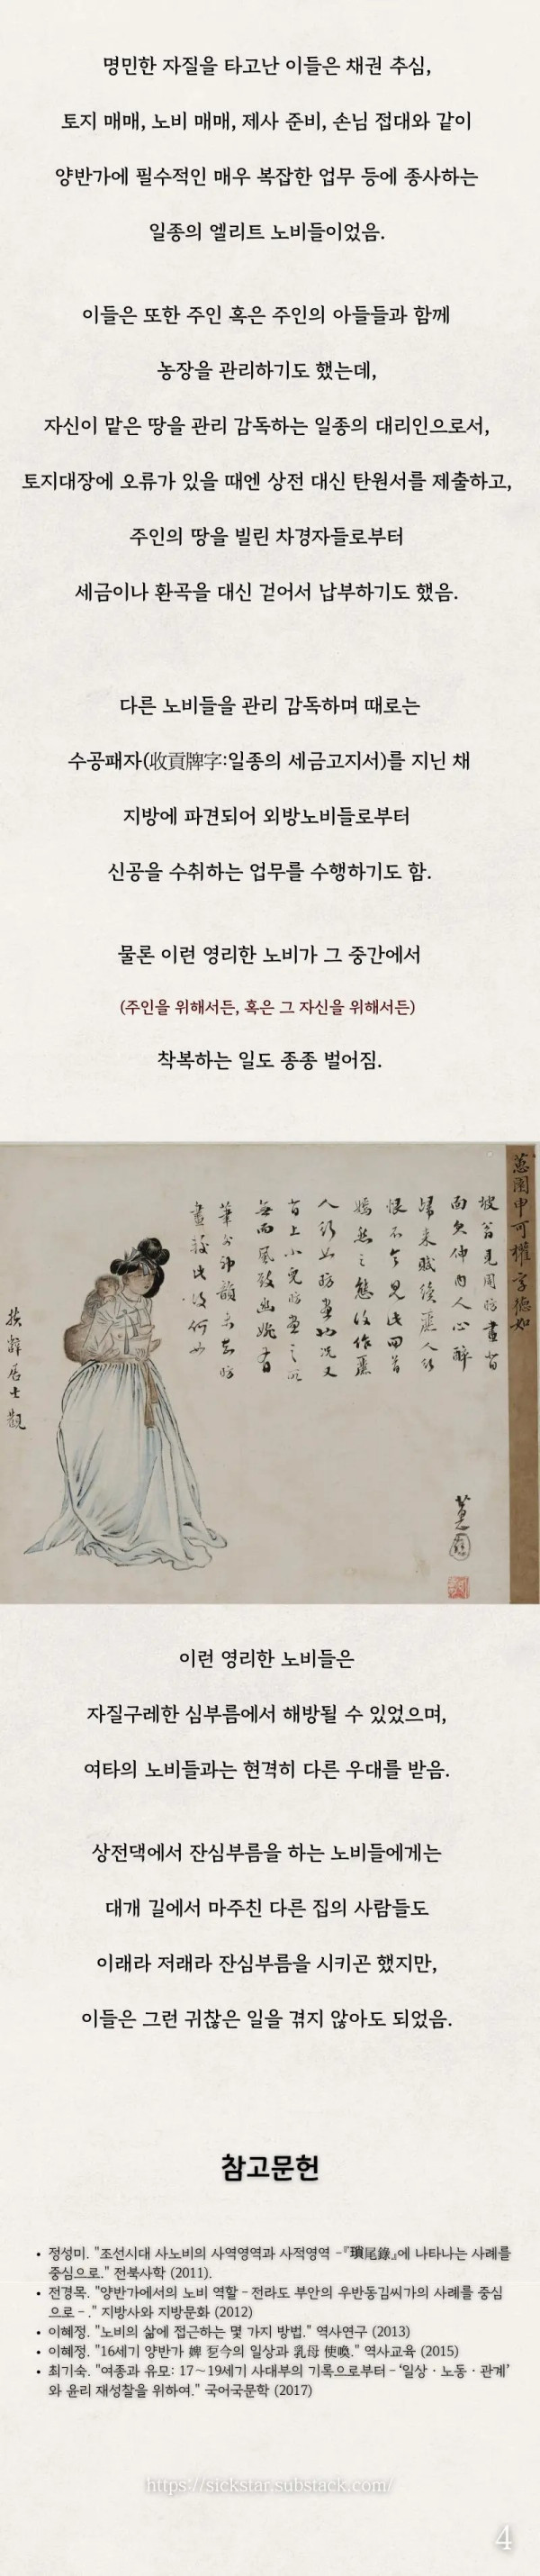 명민한 자질을 타고난 이들은 채권 추심,
토지 매매, 노비 매매, 제사 준비, 손님 접대와 같이
양반가에 필수적인 매우 복잡한 업무 등에 종사하는
일종의 엘리트 노비들이었음.
이들은 또한 주인 혹은 주인의 아들들과 함께
농장을 관리하기도 했는데,
자신이 맡은 땅을 관리 감독하는 일종의 대리인으로서,
토지대장에 오류가 있을 때엔 상전 대신 탄원서를 제출하고,
주인의 땅을 빌린 차경자들로부터
세금이나 환곡을 대신 걷어서 납부하기도 했음.
다른 노비들을 관리 감독하며 때로는
수공패자(收貢牌字:일종의 세금고지서)를 지닌 채
지방에 파견되어 외방노비들로부터
신공을 수취하는 업무를 수행하기도 함.
물론 이런 영리한 노비가 그 중간에서
(주인을 위해서든, 혹은 그 자신을 위해서든)
착복하는 일도 종종 벌어짐.
蕙園申可權字德如
坡翁見周昉畫背
面欠伸內人心醉
歸來賦續麗人行
恨不令見此回首
嫣然之態後作麗
人行如昉畫也況又
背上小兒昉畫之所
無而風致幽婉者
筆分神韻
畫後此
蕙園
扶辭居士觀
이런 영리한 노비들은
자질구레한 심부름에서 해방될 수 있었으며,
여타의 노비들과는 현격히 다른 우대를 받음.
상전댁에서 잔심부름을 하는 노비들에게는
대개 길에서 마주친 다른 집의 사람들도
이래라 저래라 잔심부름을 시키곤 했지만,
이들은 그런 귀찮은 일을 겪지 않아도 되었음.
참고문헌
• 정성미. "조선시대 사노비의 사역영역과 사적영역 -『瑣尾錄』에 나타나는 사례를
중심으로." 전북사학 (2011).
• 전경목. "양반가에서의 노비 역할 - 전라도 부안의 우반동김씨가의 사례를 중심
으로 - ." 지방사와 지방문화 (2012)
• 이혜정. "노비의 삶에 접근하는 몇 가지 방법." 역사연구 (2013)
• 이혜정. "16세기 양반가 婢 돗今의 일상과 乳母 使喚." 역사교육 (2015)
• 최기숙. "여종과 유모: 17~19세기 사대부의 기록으로부터 - ‘일상 · 노동 · 관계’
와 윤리 재성찰을 위하여." 국어국문학 (2017)
https://sickstar.substack.com/
4